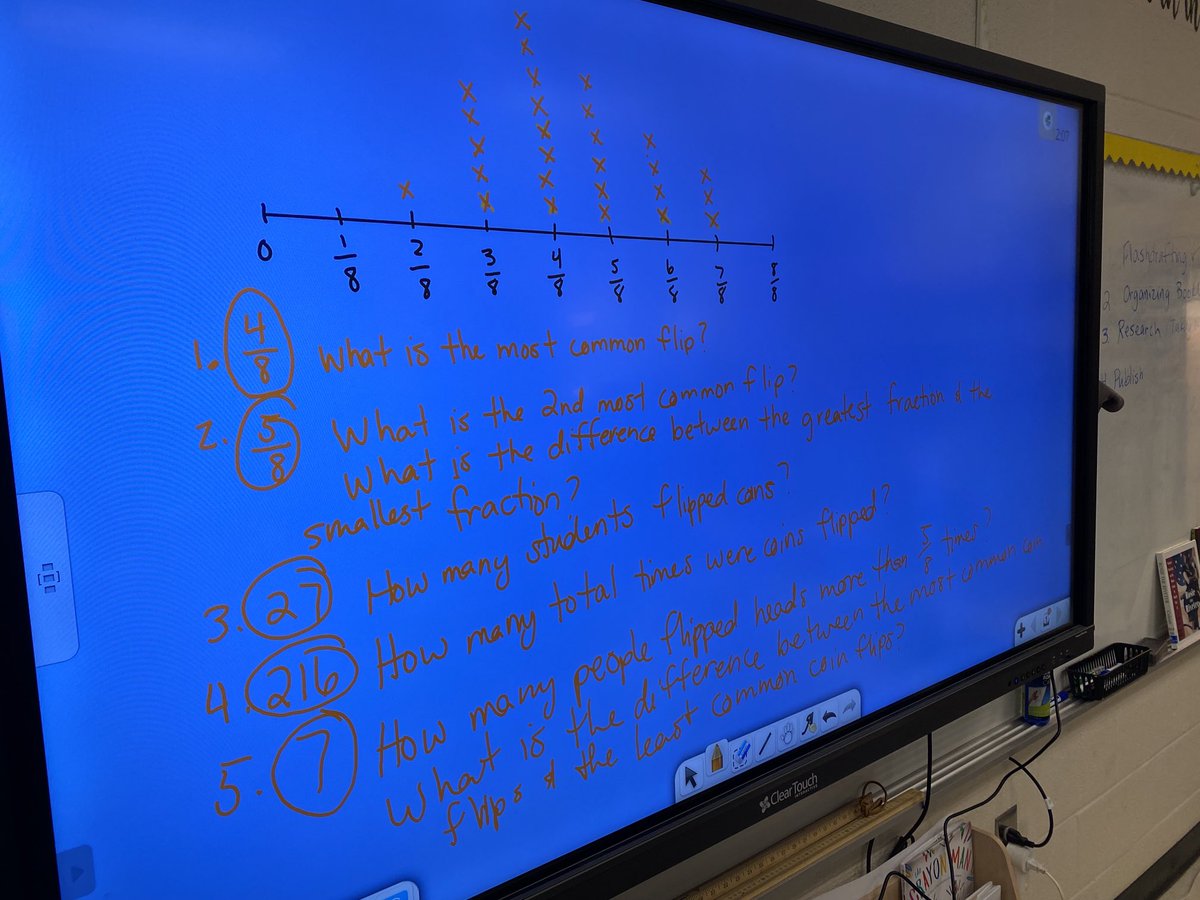 2:07
0 1/8 2/8 3/8 4/8 5/8 6/8 7/8 8/8
1. 4/8 What is the most common flip?
2. 5/8 What is the 2nd most common flip?
What is the difference between the greatest fraction & the
smallest fraction?
3. 27 How many students flipped coins?
4. 216 How many total times were coins flipped?
5. 7 How many people flipped heads more than 5/8 times?
What is the difference between the most common coin
flips & the least common coin flips?
ClearTouch
INTERACTIVE
Flashdrafting
2. Organizing
3. Research
Publish
CRAYON
MAN